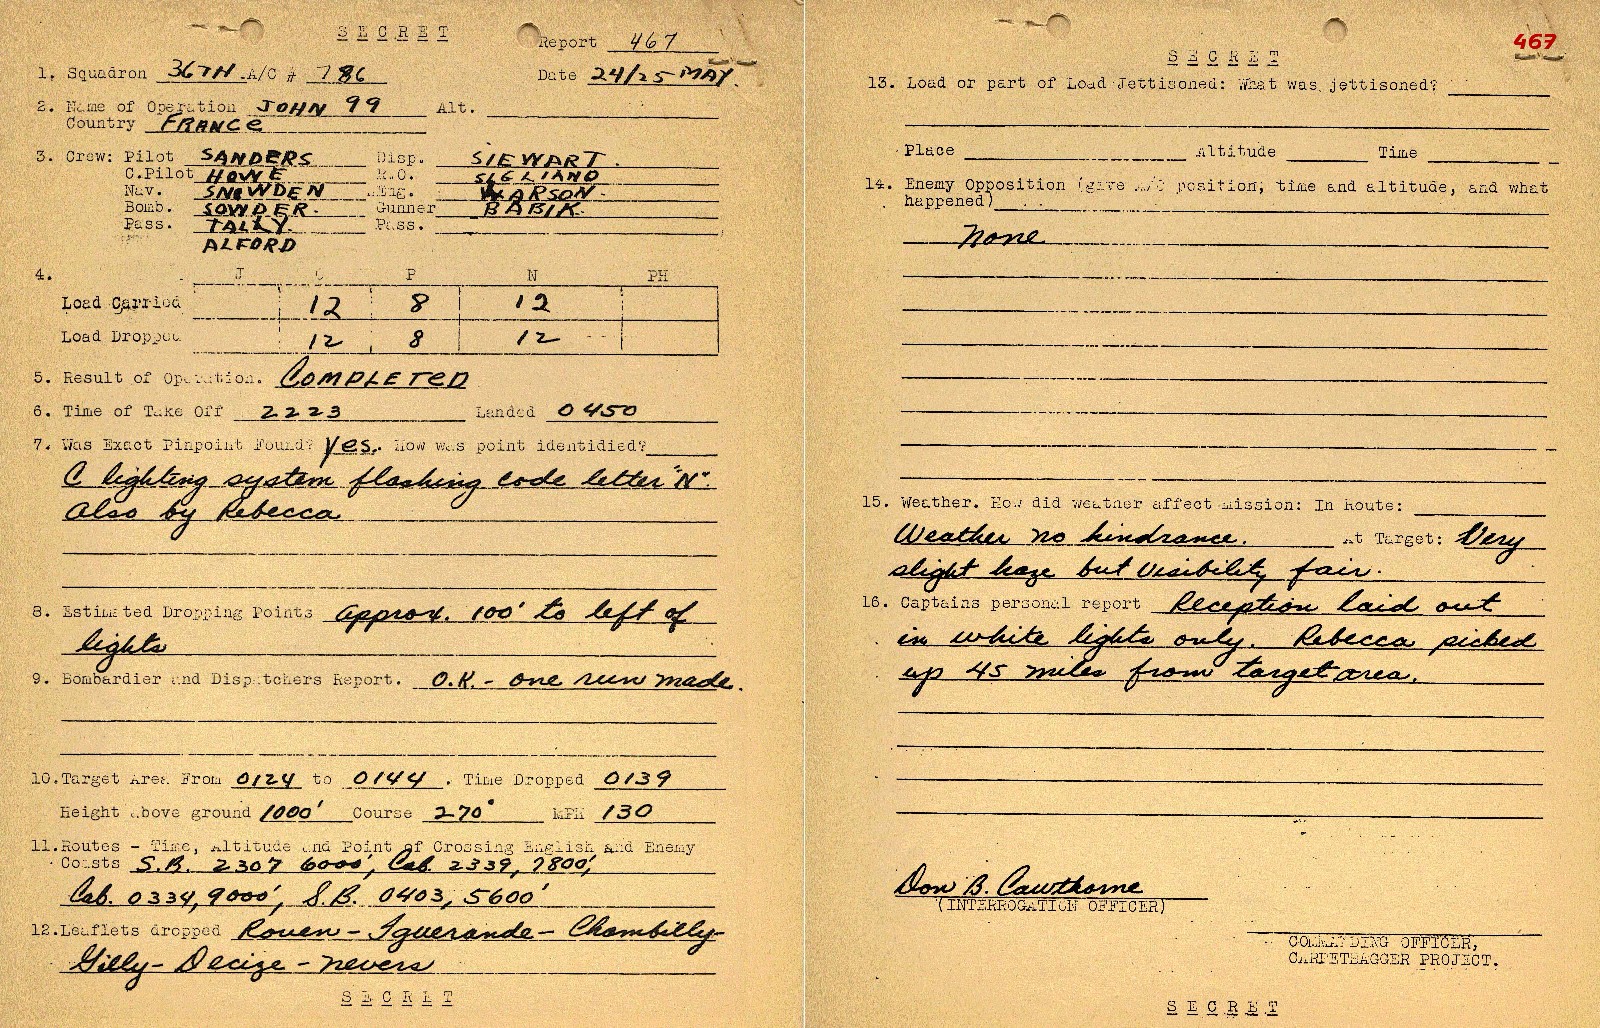 SECRET
Report 467
1. Squadron 36TH A/C # 786 Date 24/25 MAY.
2. Name of Operation JOHN 99 Alt.
Country FRANCE
3. Crew: Pilot SANDERS Disp. STEWART.
C.Pilot HOWE R.O. SIGLIANO
Nav. SNOWDEN Eng. LARSON
Bomb. SOWDER. Gunner BABIK.
Pass. TALLY. Pass.
ALFORD
4. J C P N PH
Load Carried 12 8 12
Load Dropped 12 8 12
5. Result of Operation. COMPLETED
6. Time of Take Off 2223 Landed 0450
7. Was Exact Pinpoint Found? Yes. How was point identidied?
C lighting system flashing code letter "N".
Also by Rebecca
8. Estimated Dropping Points Approx. 100' to left of
lights
9. Bombardier and Dispatchers Report. O.K. - one run made.
10. Target Area From 0124 to 0144. Time Dropped 0139
Height above ground 1000' Course 270° MPH 130
11. Routes - Time, Altitude and Point of Crossing English and Enemy
Coasts S.B. 2307 6000', Cab. 2339, 7800',
Cab. 0334, 9000', S.B. 0403, 5600'
12. Leaflets dropped Rouen - Iguerande - Chambilly -
Gilly - Decize - Nevers
SECRET
467
SECRET
13. Load or part of Load Jettisoned: What was jettisoned?
Place Altitude Time
14. Enemy Opposition (give A/C position, time and altitude, and what
happened)
None
15. Weather. How did weather affect mission: In Route:
Weather no hindrance. At Target: Very
slight haze but visibility fair.
16. Captains personal report Reception laid out
in white lights only. Rebecca picked
up 45 miles from target area.
Don B. Cawthorne
(INTERROGATION OFFICER)
COMMANDING OFFICER,
CARPETBAGGER PROJECT.
SECRET